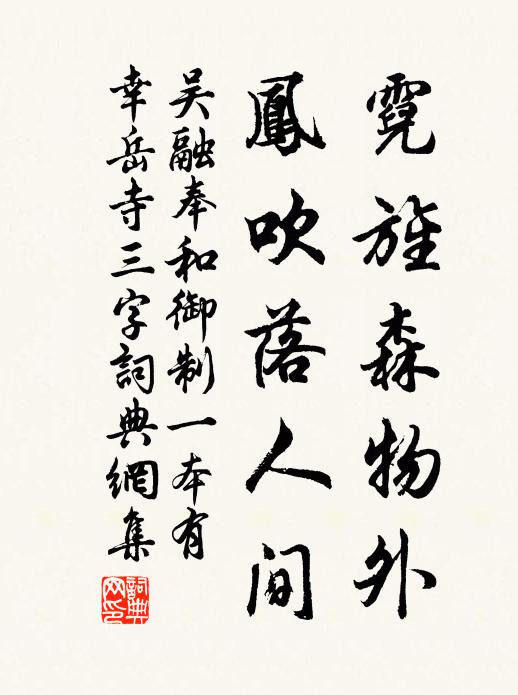 霓旌森物外
鳳吹落人間
吴融奉和御制一本有
幸岳寺三字詞典網集
詞典
网印